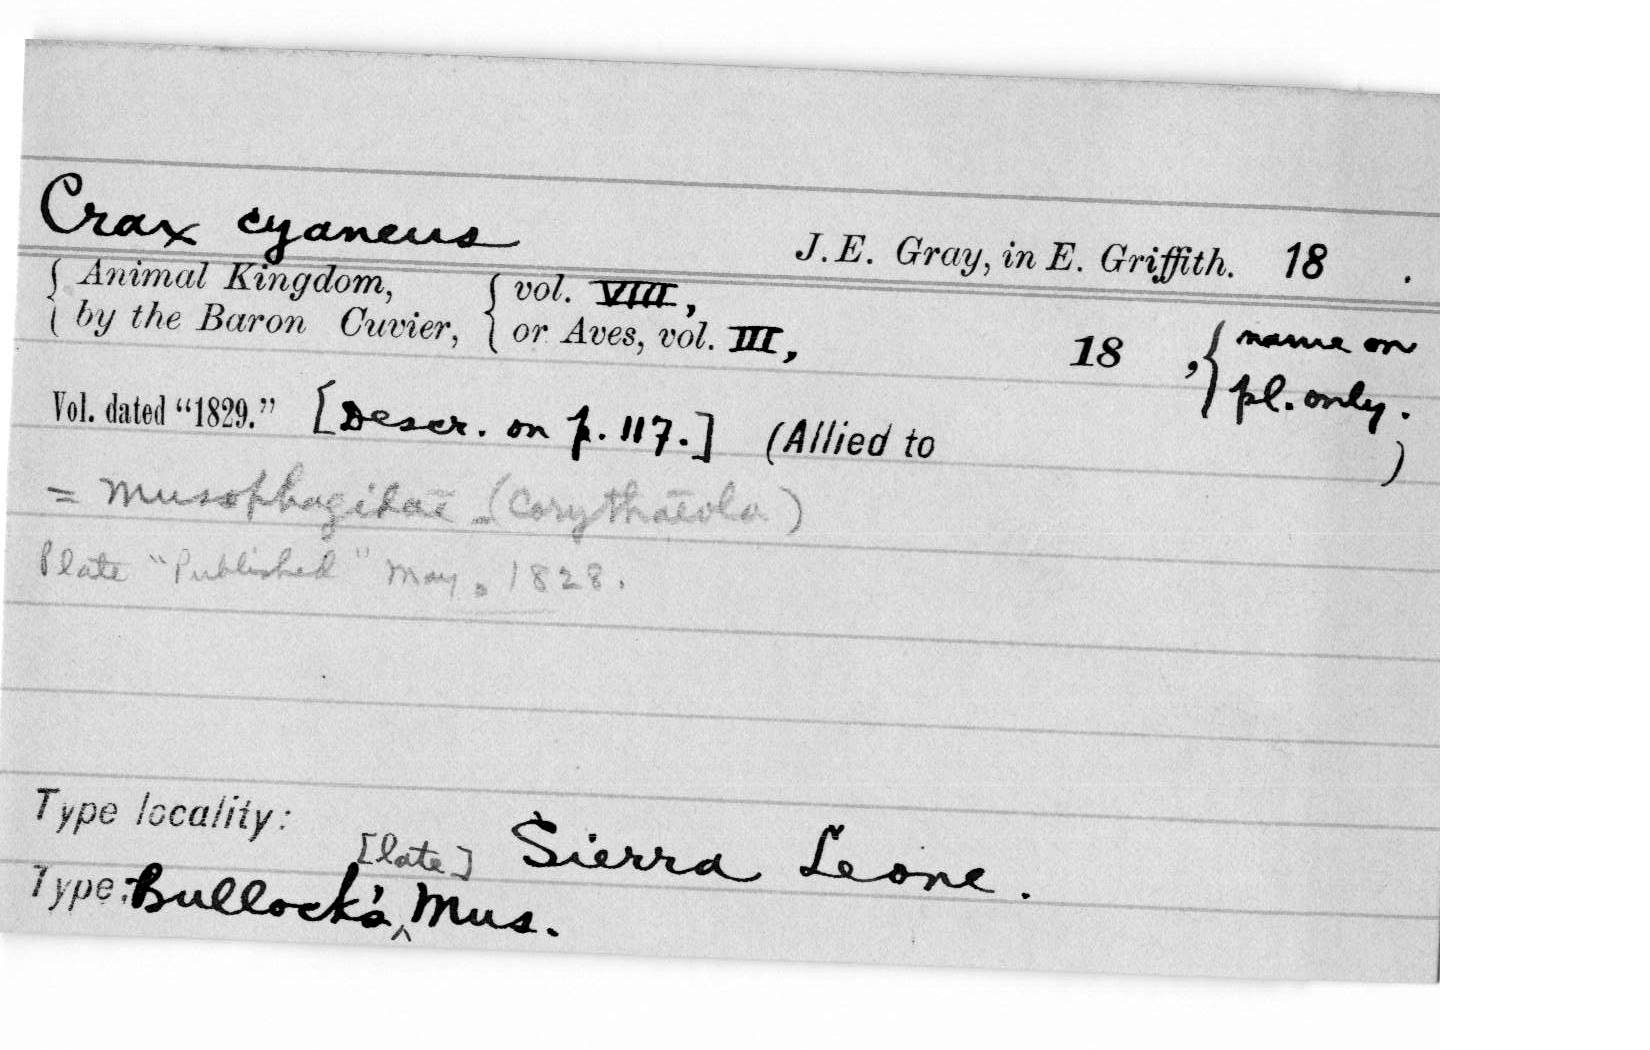 Crax cyaneus J. E. Gray, in E. Griffith. 18 .
{ Animal Kingdom, { vol. VIII,
{ by the Baron Cuvier, { or Aves, vol. III, 18 , { name on
pl. only.
Vol. dated “1829.” [Descr. on p. 117.] (Allied to )
= Musophagidae - (Corythaeola)
Plate "Published" May, 1828.
Type locality: Sierra Leone.
[late]
Type: Bullock's ^ Mus.